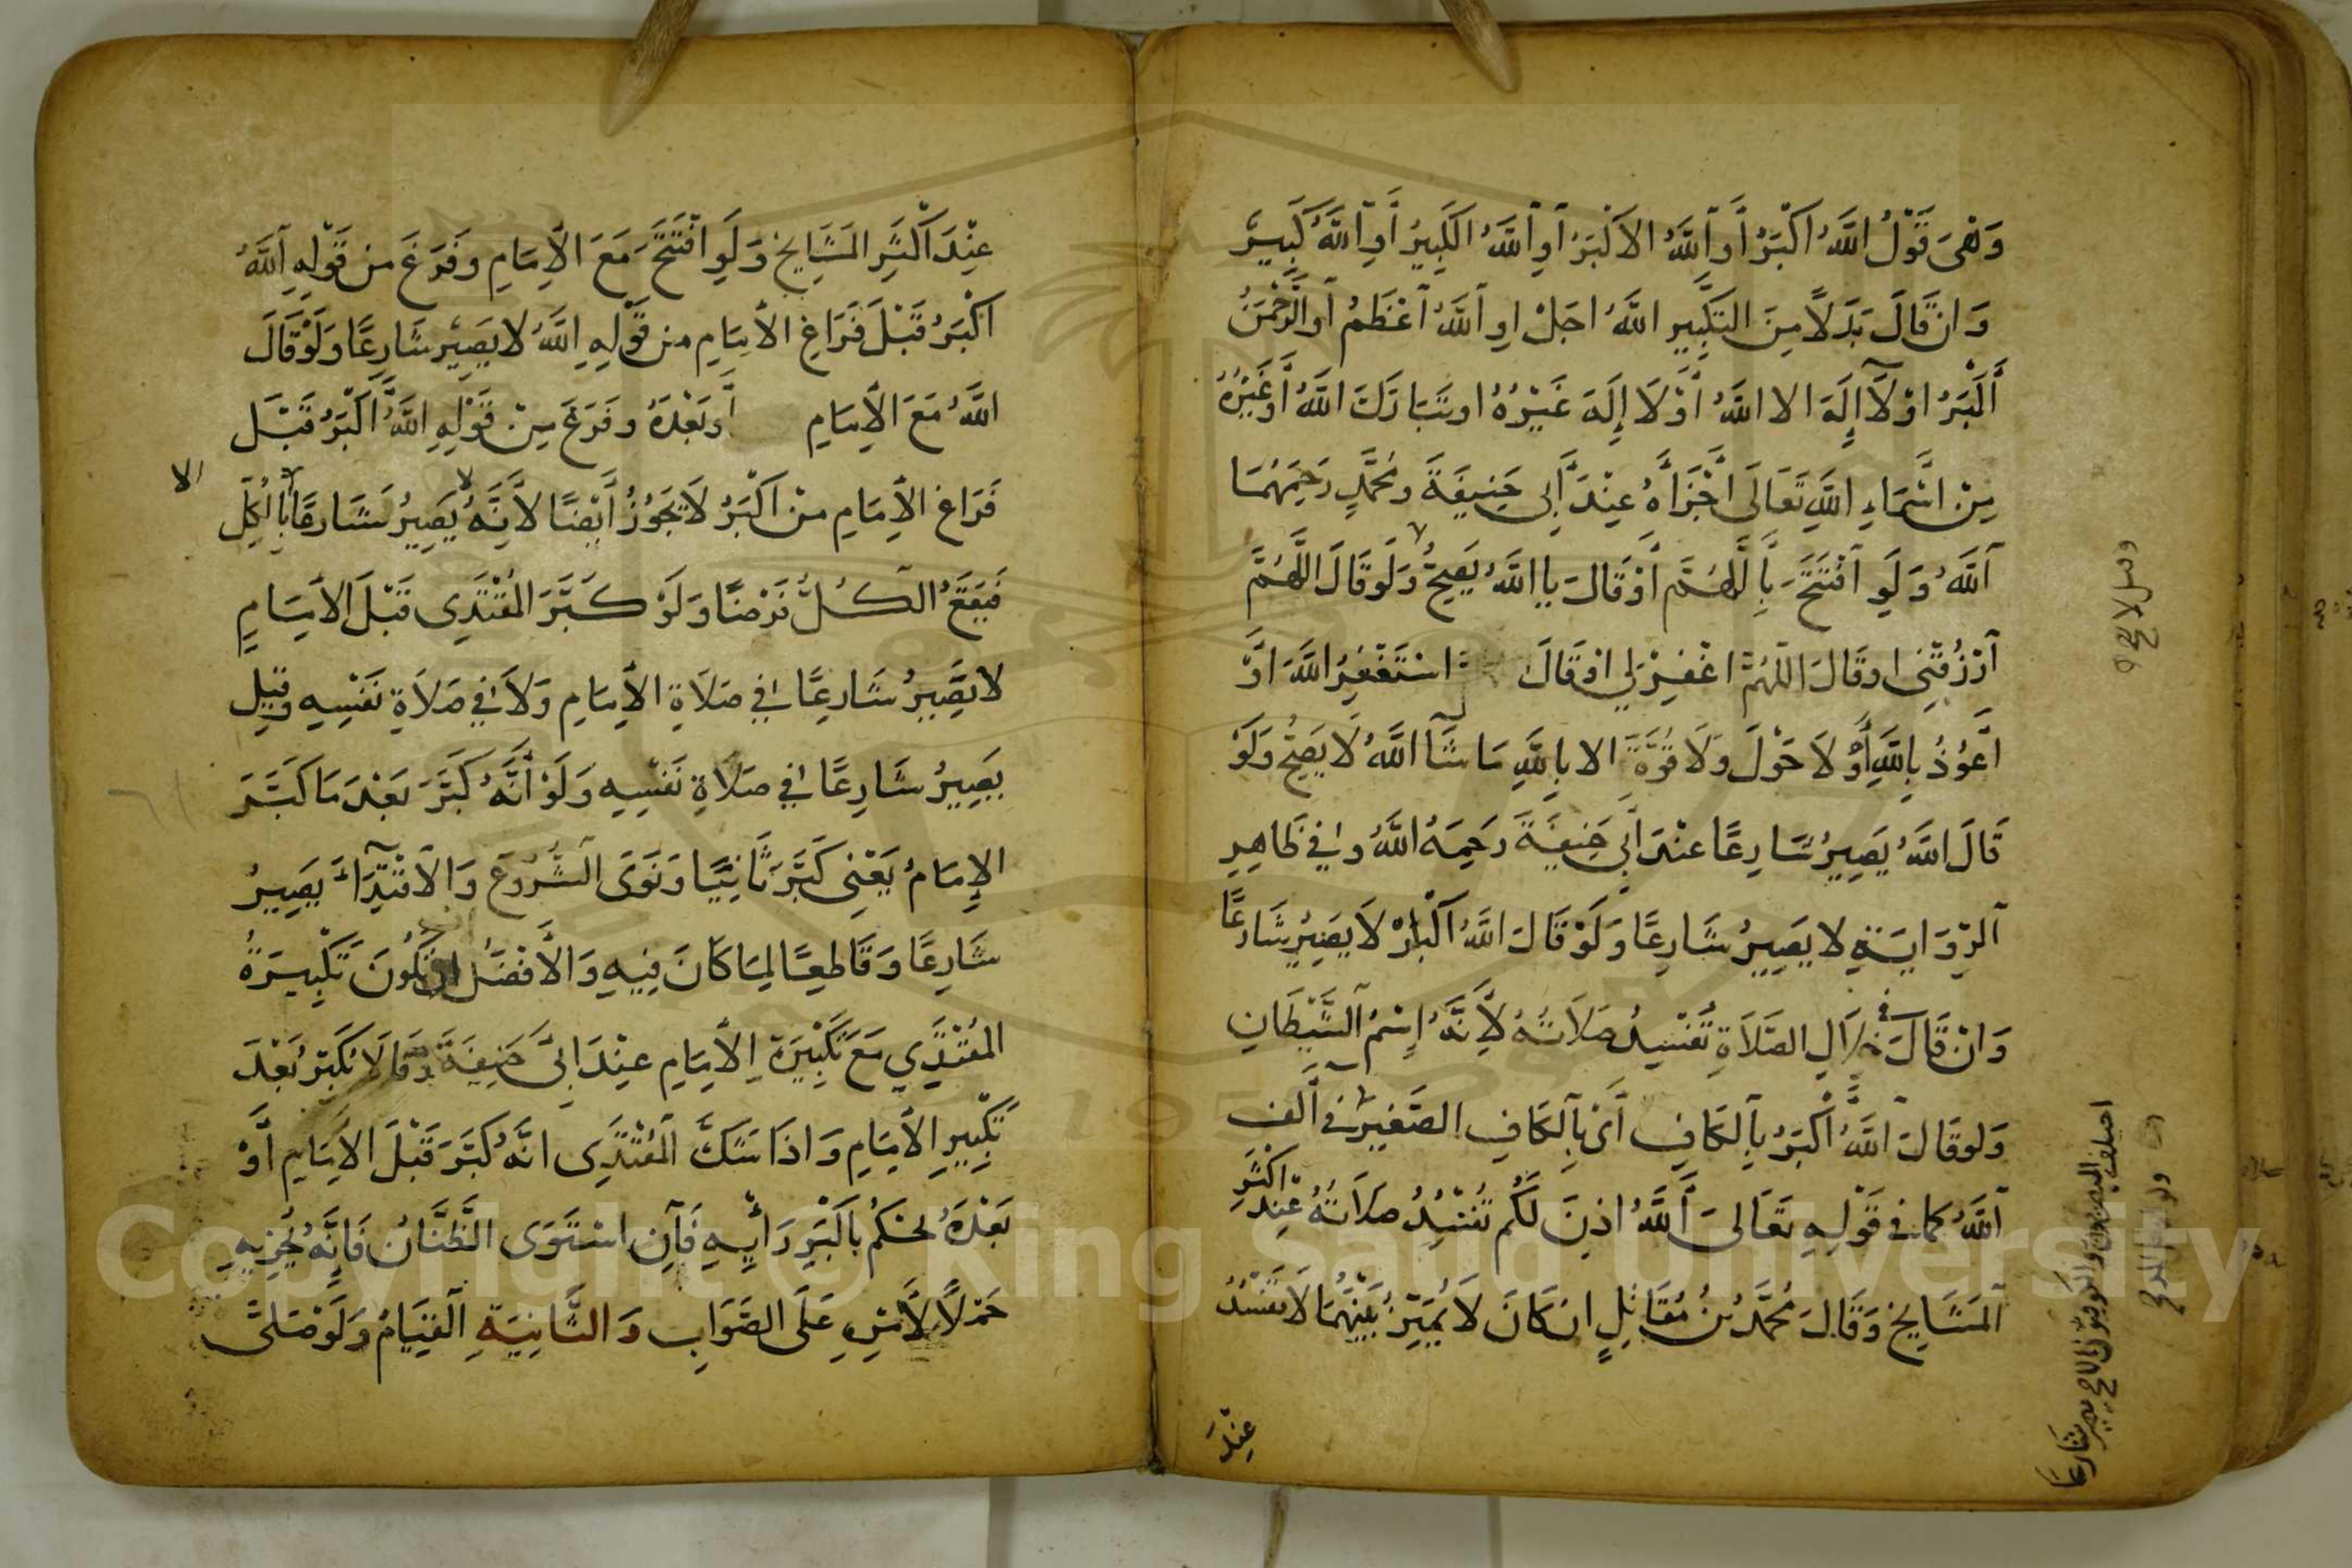 وَهْىَ قَوْلُ اللَّهُ اَكْبَرُ أَو اَللَّهُ الاَكْبَرُ اَوِ اَللَّهُ الكَبِيرُ أَوِ اَللَّهُ كَبِيرٌ
وَان قَالَ بَدَلاً مِنَ التَكْبِيرِ اللَّهُ اجَلْ اوِ اَللَّهُ اَعْظَمُ اَو الرَّحْمَنُ
أَكْبَرُ اوْ لاَ إِلَهَ الا اللَّهُ أَوْ لَا إِلَهَ غَيْرُهُ او تَبَارَكَ اللَّهُ أَو غَيْرُهُ
مِنْ اسْمَاءِ اللَّهِ تَعَالَى أَجْزَأَهُ عِنْدَ أَبِى حَنِيفَةَ ومُحَمَّدٍ رَحِمَهُمَا
اَللَّهُ وَلَوِ اَفْتَتَحَ بِاَللَّهُمَّ أَوْ قَالَ يا اللَّهُ يَصِحُّ وَلَو قَالَ اللَّهُمَّ
اَرْزُقْنِى او قَالَ اللَّهُمَّ اغْفِرْلِى اوْ قَالَ اسْتَغْفِرُ اللَّهَ اوْ
اَعُوْذُ بِاللَّهِ أَوْ لاَ حَوْلَ وَلَا قُوَّةَ الا بِاللَّهِ مَا شَآ اللَّهُ لَا يَصِحُّ وَلَوْ
قَالَ اللَّهُ يَصِيرُ شَارِعًا عنْدَ أَبِى حَنِيفَةَ رَحِمَهُ اللَّهُ وفِى ظَاهِرِ
اَلرِّوَايَةِ لا يَصِيرُ شَارِعًا وَلَوْ قَالَ اللَّهُ اَكْبَارْ لاَ يَصِيرُ شَارِعًا
وَانْ قَالَ فى خِلاَلِ الصَّلَاةِ تَفْسِدُ صَلاَتُهُ لِأَنَّهُ اِسْمُ اَلشَّيْطَانِ
وَلو قَالَ اَللَّهُ أَكْبَرُ بِاَلكَافِ أَىْ بِاَلكَافِ الصَّغِيرِ فى اَلف
اَللَّهُ كما فى قَوْلِهِ تَعَالىَ اَللَّهُ اذِنَ لَكُم تَفْسُدُ صَلاَتُهُ عِنْدَ اكْثَرِ
اَلمَشَايِخِ وَقَالَ مُحَمَّدُ بْنُ مُقَاتِلٍ ان كَانَ لاَ يُمَيِّزُ بَيْنَهُمَا لاَ تَفْسُدُ
عِنْدَ
وقيل لا يصح
عِنْدَ اَكْثَرِ المَشَايِخِ وَلَوِ افْتَتَحَ مَعَ الأِمَامِ وفَرَغَ من قَوْلِهِ اَللَّهُ
اَكْبَرُ قَبْلَ فَرَاغِ الأمَامِ من قَوْلِهِ اللَّهُ لا يَصِيرُ شَارِعًا وَلَوْ قَالَ
اللَّهُ مَعَ الأِمَامِ أَو بَعْدَهُ وفَرَغَ مِنْ قَوْلِهِ اللَّهُ اَكْبَرُ قَبْلَ
فَرَاغِ الأِمَامِ منْ اَكْبَرُ لاَ يَجُوْزُ أَيْضًا لأَنَّهُ يَصِيرُ شَارِعًا بِالكُلِّ
الا
فَيَقَعُ الْكُلُّ فَرْضًا وَلَوْ كَبَّرَ المُقْتَدِى قَبْلَ الأمَامِ
لا يَصِيرُ شَارِعًا فِى صَلاَةِ الأِمَامِ وَلاَ فِى صَلاَةِ نَفْسِهِ وقِيلَ
يَصِيرُ شَارِعًا فِى صَلاَةِ نَفْسِهِ وَلَوْ أَنَّهُ كَبَّرَ بَعْدَ مَا كَبَّرَ
الإِمَامُ يَعْنِى كَبَّرَ ثَانِيًا وَنَوَى اَلشُّرُوعَ وَالاقْتِدَاءَ يَصِيرُ
شَارِعًا وَقَاطِعًا لِمَا كَانَ فِيهِ وَالأَفْضَلُ ان تَكُونَ تَكْبِيرَةُ
المُقْتَدِي مَعَ تَكْبِيرَةِ الأِمَامِ عِنْدَ ابِى حَنِيفَةَ وقَالاَ يُكَبِّرُ بَعْدَ
تَكْبِيرِ الأِمَامِ وَاذَا شَكَّ اَلمُقْتَدِى انَّهُ كَبَّرَ قَبْلَ الأِمَامِ أَوْ
بَعْدَهُ يَحْكُمُ بِاَكْبَرِ رَأْيِهِ فَاِنِ اسْتَوَى الظَّنَّانُ فَاِنَّهُ يُجْزِيهِ
حَمْلاً لأَمْرِهِ عَلَى الصَّوَابِ وَالثَّانِيَةِ اَلقِيَامُ وَلَوْ صَلَّى